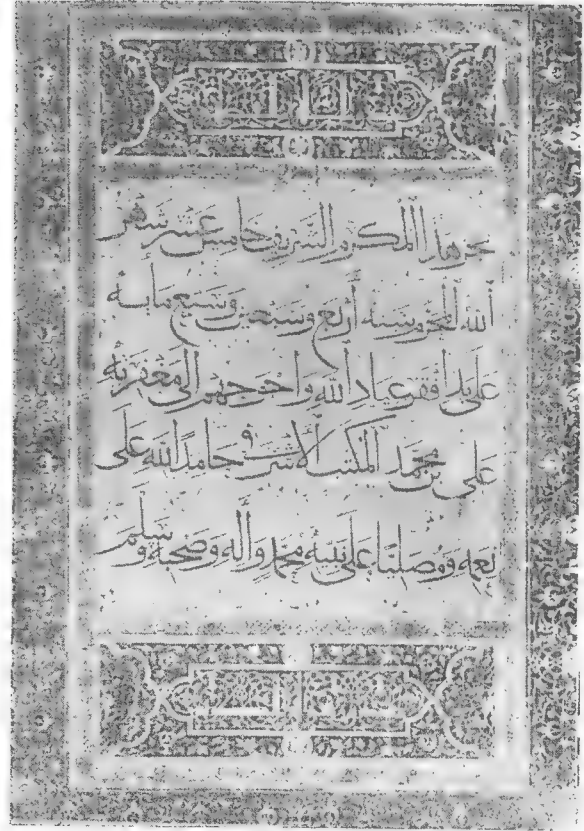 نجز هذا المكرم الشريف خامس عشر شهر
الله المحرم سنة أربع وسبعين وسبع مأية
على يد أفقر عباد الله وأحوجهم إلى مغفرته
علي بن محمد المكتب الأشرفي حامدا لله على
نعمه ومصليا على نبيه محمد وآله وصحبه وسلم